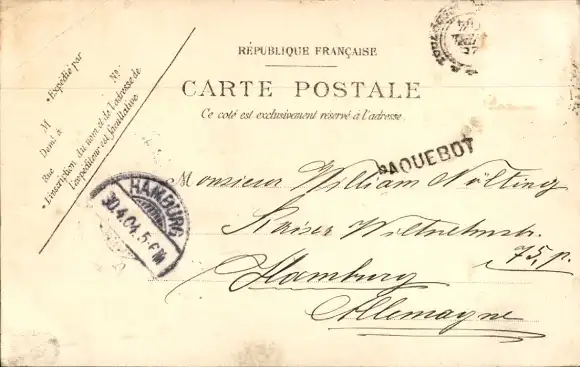 RÉPUBLIQUE FRANÇAISE
CARTE POSTALE
Ce coté est exclusivement réservé à l'adresse
* Expédié par
M
Demt à
Rue No
* L'inscription du nom et de l'adresse de
l'expéditeur est facultative
PAQUEBOT
HAMBURG
30.4.04.5-6N
Monsieur William Nölting
Kaiser Wilhelmstr.
75, p.
Hamburg
Allemagne